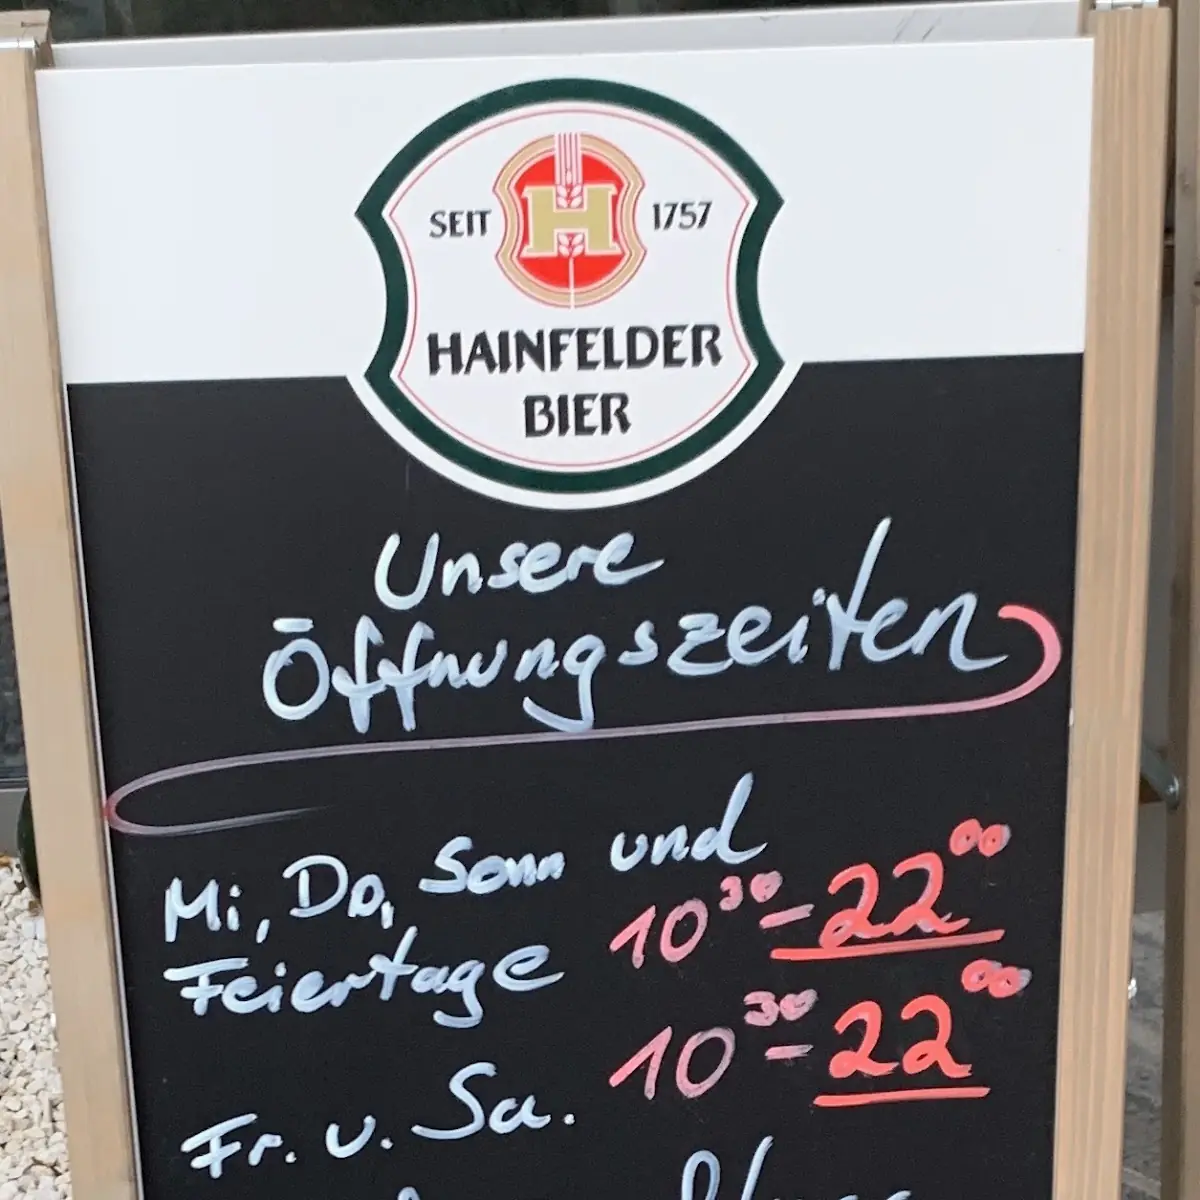 SEIT H 1757
HAINFELDER
BIER
Unsere
Öffnungszeiten
Mi, Do, Sonn und
Feiertage 10³⁰ - 22⁰⁰
Fr. u. Sa. 10³⁰ - 22⁰⁰